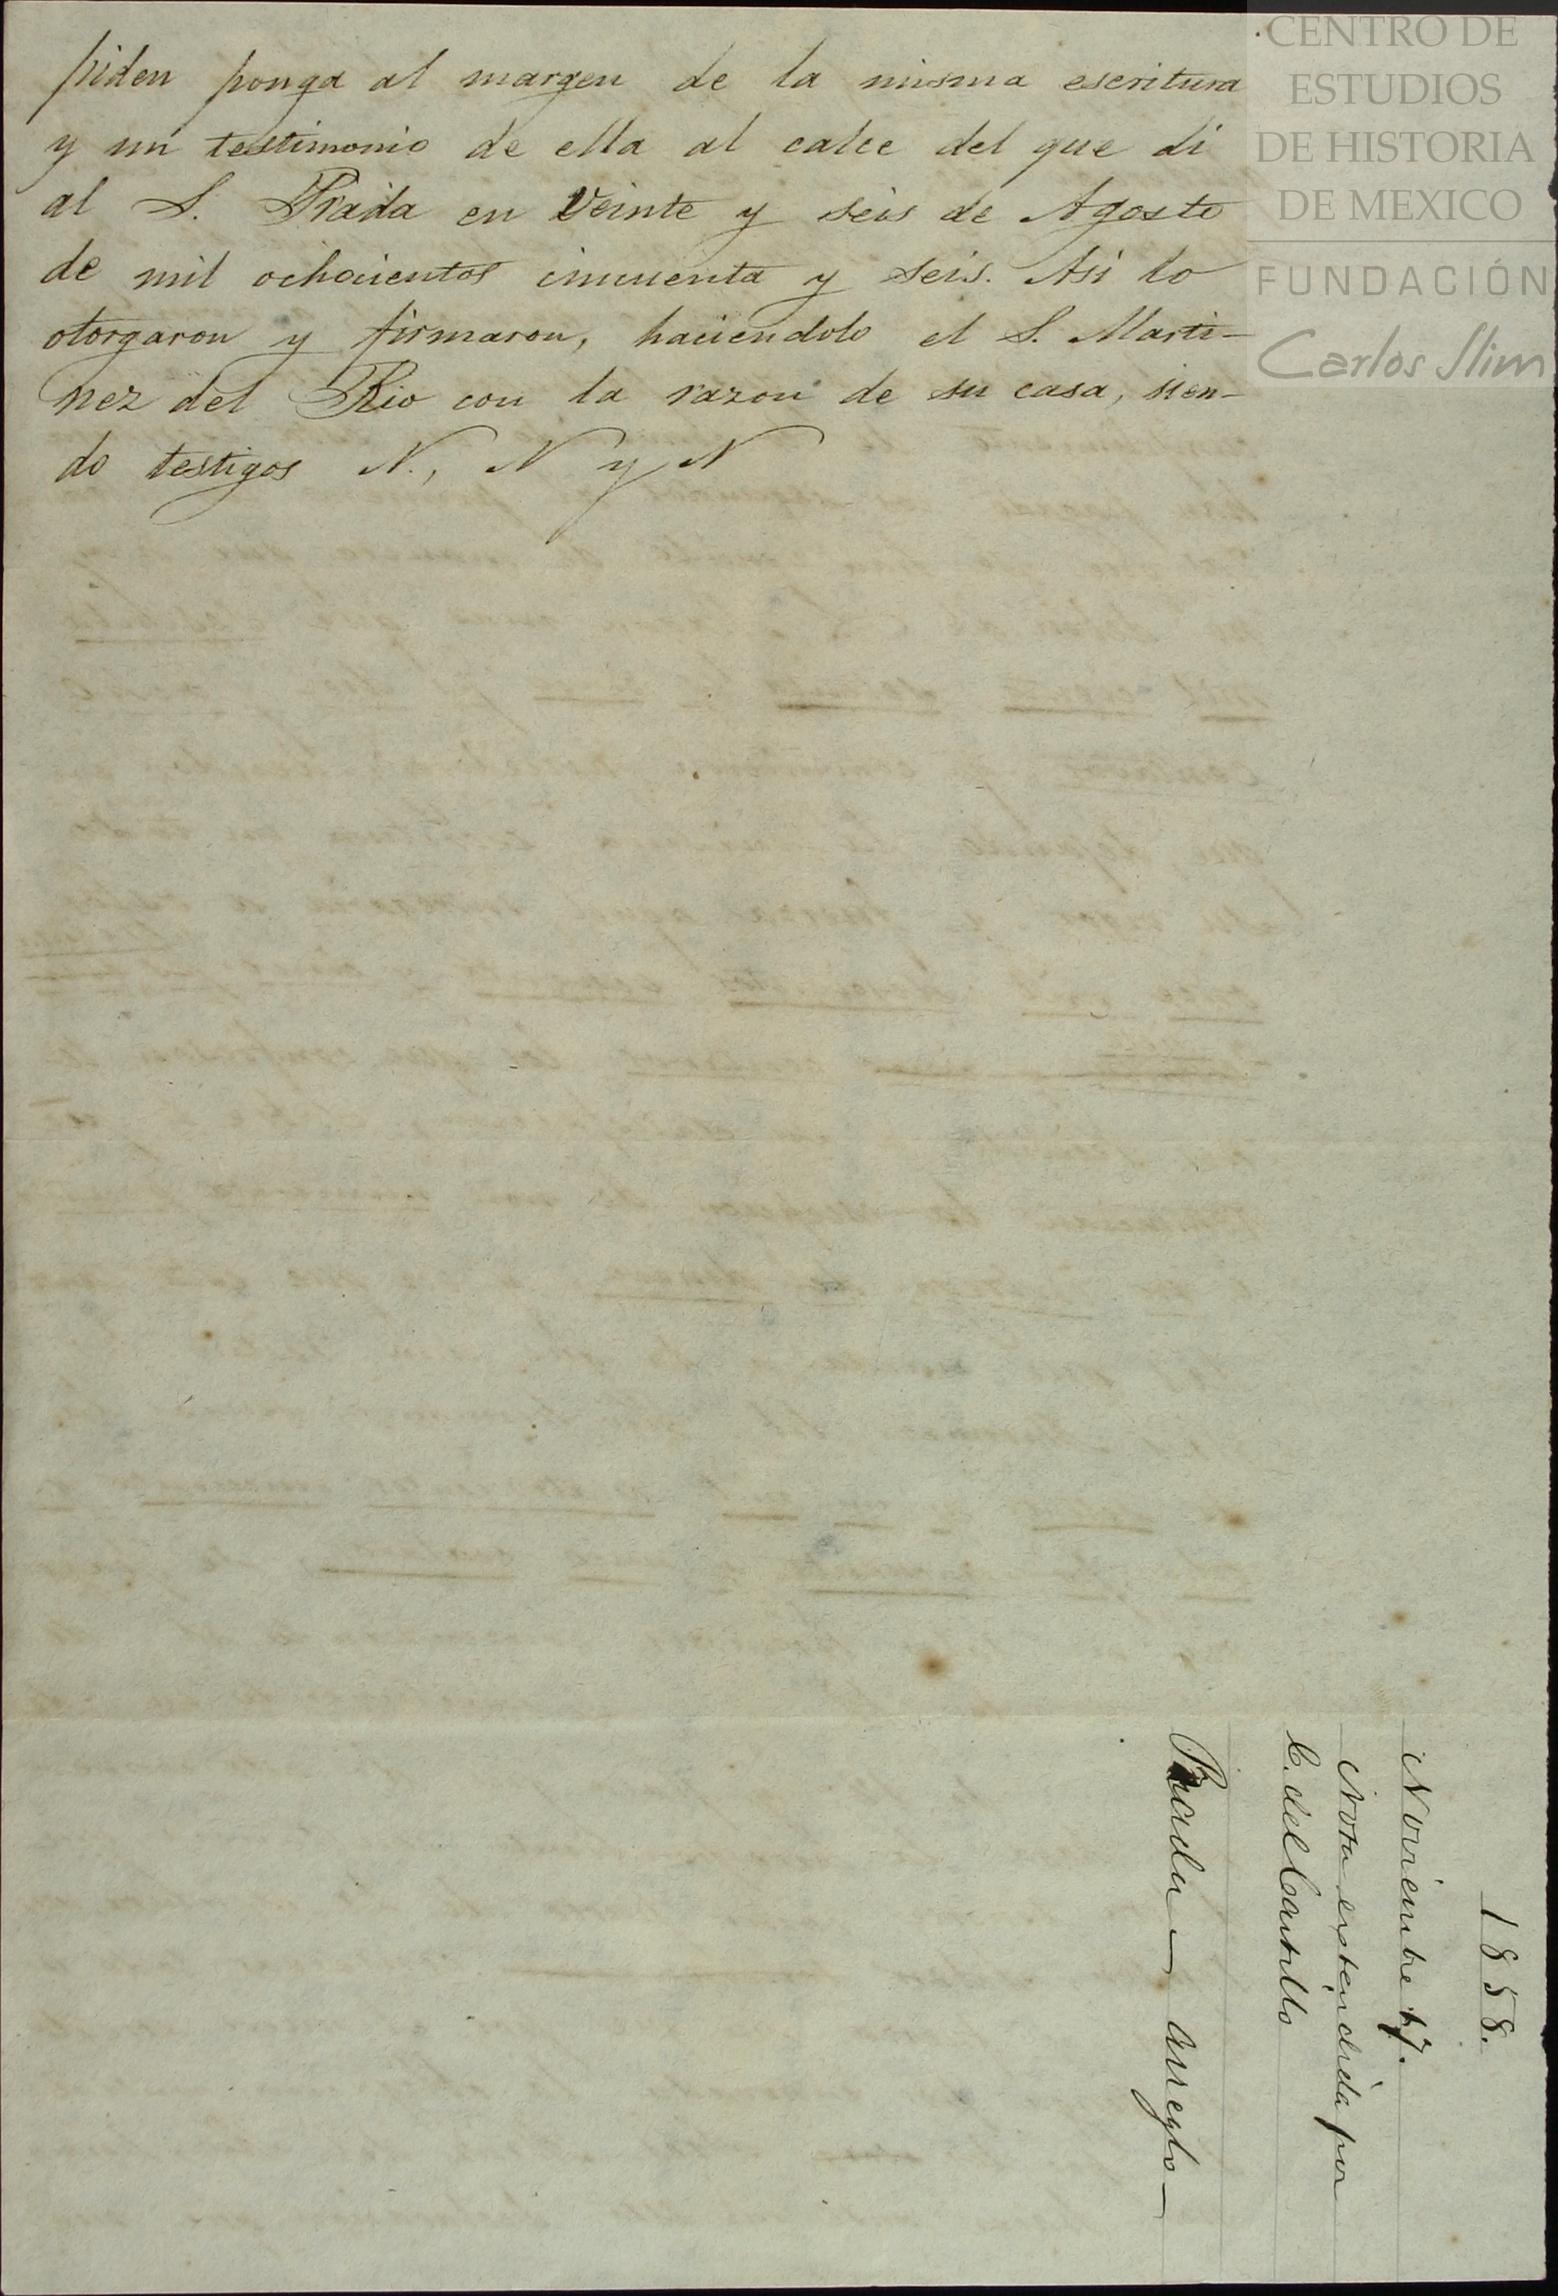 piden ponga al margen de la misma escritura
y un testimonio de ella al calce del que di
al S. Prada en veinte y seis de Agosto
de mil ochocientos cincuenta y seis. Asi lo
otorgaron y firmaron, haciendolo el S. Marti-
nez del Rio con la razon de su casa, sien-
do testigos N., N y N
CENTRO DE
ESTUDIOS
DE HISTORIA
DE MEXICO
FUNDACIÓN
Carlos Slim
1858.
Noviembre
Nota estendida por
C. del Castillo
Prada — arreglo —